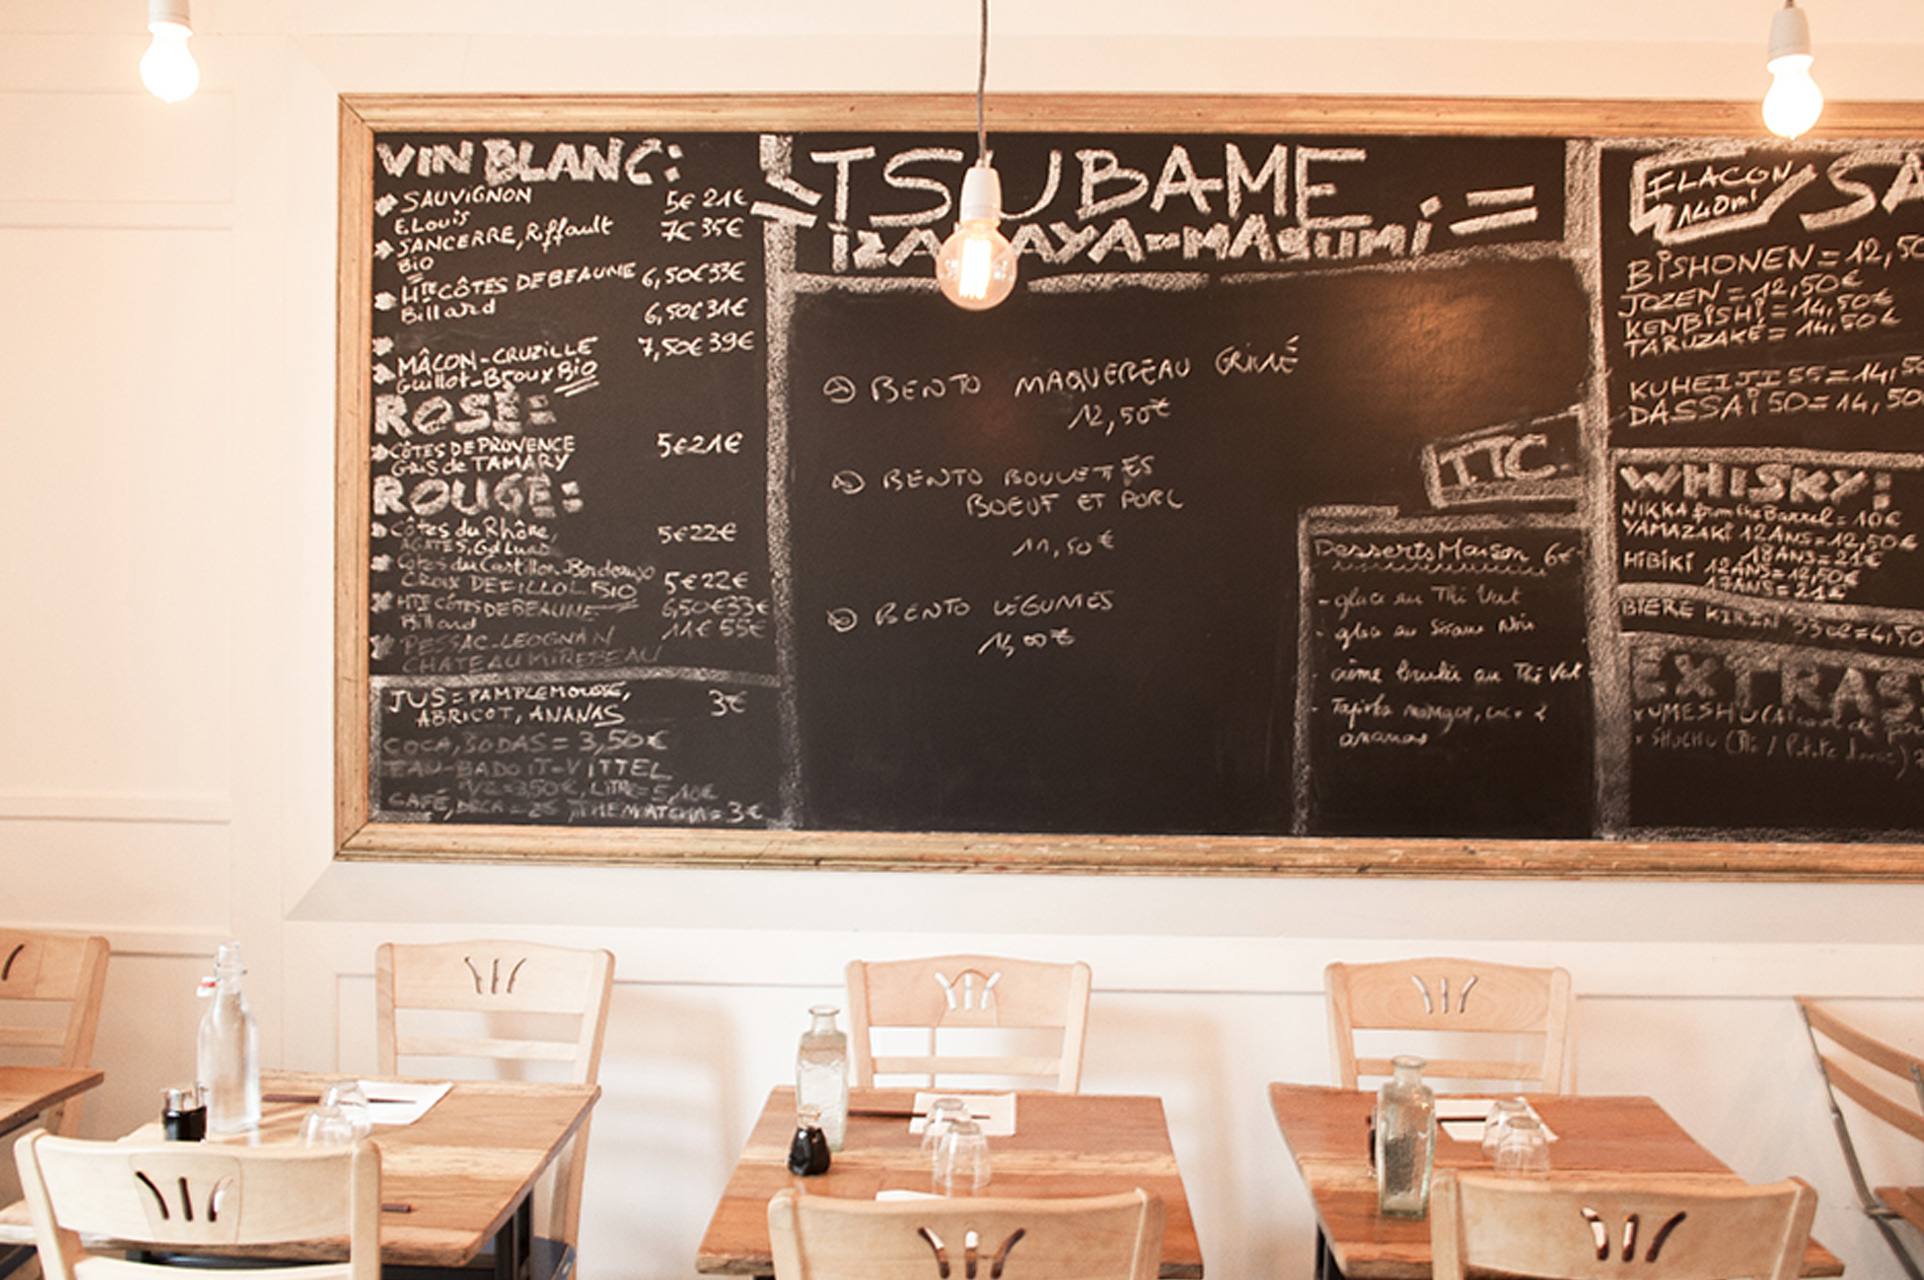 VIN BLANC:
SAUVIGNON 5€ 21€
E.Louis
SANCERRE, Riffault 7€ 35€
Bio
Hte CÔTES DE BEAUNE 6,50€ 33€
Billard
6,50€ 31€
MÂCON-CRUZILLE 7,50€ 39€
Guillot-Broux Bio
ROSÉ:
CÔTES DE PROVENCE 5€ 21€
Gris de TAMARY
ROUGE:
Côtes du Rhône, 5€ 22€
AGATES,
Côtes du Castillon-Bordeaux
CROIX DEFILLOL BIO 5€ 22€
Hte CÔTES DE BEAUNE 6,50€ 33€
Billard
PESSAC-LEOGNAN 11€ 55€
CHATEAU MIREBEAU
JUS = PAMPLEMOUSSE, 3€
ABRICOT, ANANAS
COCA, SODAS = 3,50€
EAU-BADOIT-VITTEL
1/2 = 3,50€, LITRE = 5,10€
CAFÉ, DECA = 2€, THE MATCHA = 3€
TSUBAME
IZAKAYA-MASUMI =
BENTO MAQUEREAU GRILLÉ
12,50€
BENTO BOULETTES
BOEUF ET PORC
11,50€
BENTO LÉGUMES
TTC
Desserts Maison 6€
- glace au Thé Vert
- glace au Sésame Noir
- crème brulée au Thé Vert
- Tapioka mangue, coco &
ananas
FLACON SA
140ml
BISHONEN = 12,50
JOZEN = 12,50€
KENBISHI = 14,50€
TARUZAKÉ = 14,50€
KUHEIJI 55 = 14,50
DASSAÏ 50 = 14,50
WHISKY:
NIKKA from the Barrel = 10€
YAMAZAKI 12ANS = 12,50€
18ANS = 21€
HIBIKI 12ANS = 12,50€
17ANS = 21€
BIERE KIRIN 33cl = 4,50
EXTRAS
x UMESHU (Alcool de
x SHOCHU (Riz / Patate douce)